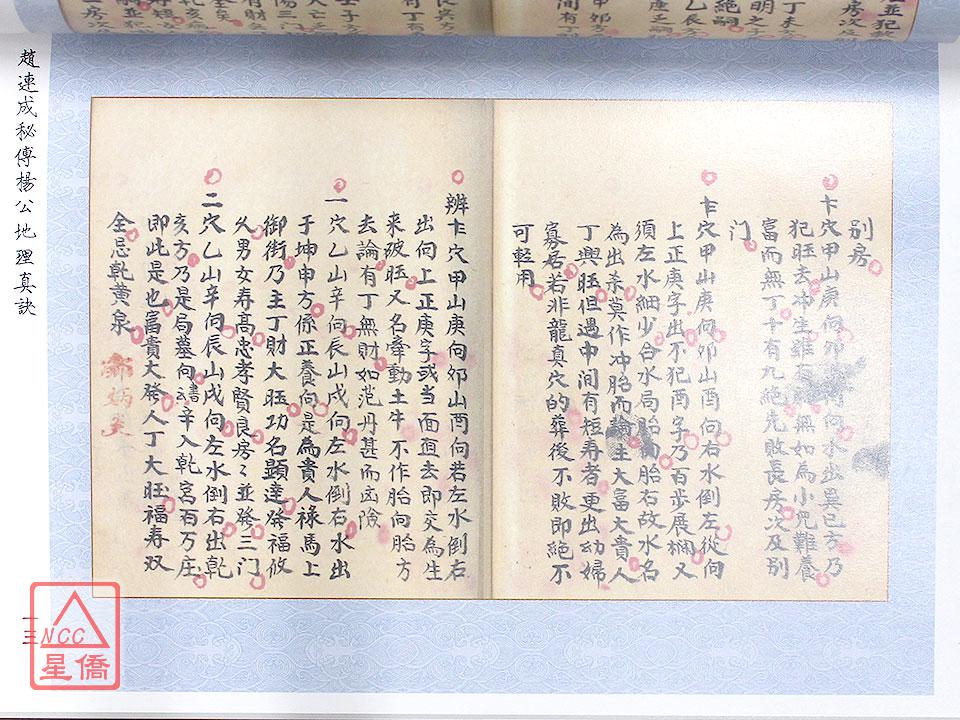 趙連成秘傳楊公地理真訣
別房
卞穴甲山庚向卯山酉向水出巽巳方乃
犯旺去冲生雖有 無如為小兒難養
富而無丁十有九絕先敗長房次及別
门
卞穴甲山庚向卯山酉向右水倒左從向
上正庚字出不犯酉字乃百步展欄又
須左水細少合水局胎向胎右故水名
為出杀莫作冲胎而論主大富大貴人
丁興旺但遇中间有短寿者更出幼婦
寡居若非龍真穴的葬後不敗即絕不
可輕用
辨卞穴甲山庚向卯山酉向若左水倒右
出向上正庚字或当面直去即交為生
来破旺又名牽動土牛不作胎向胎方
去論有丁無財如范丹甚而凶險
一穴乙山辛向辰山戌向左水倒右水出
于坤申方係正養向是為貴人祿馬上
御街乃主丁財大旺功名顯達發福攸
久男女寿高忠孝賢良房〻並發三门
二穴乙山辛向辰山戌向左水倒右出乾
亥方乃是局墓向書辛入乾宮百万庄
即此是也富貴大發人丁大旺福寿双
全忌乾黄泉
一三
NCC
星僑